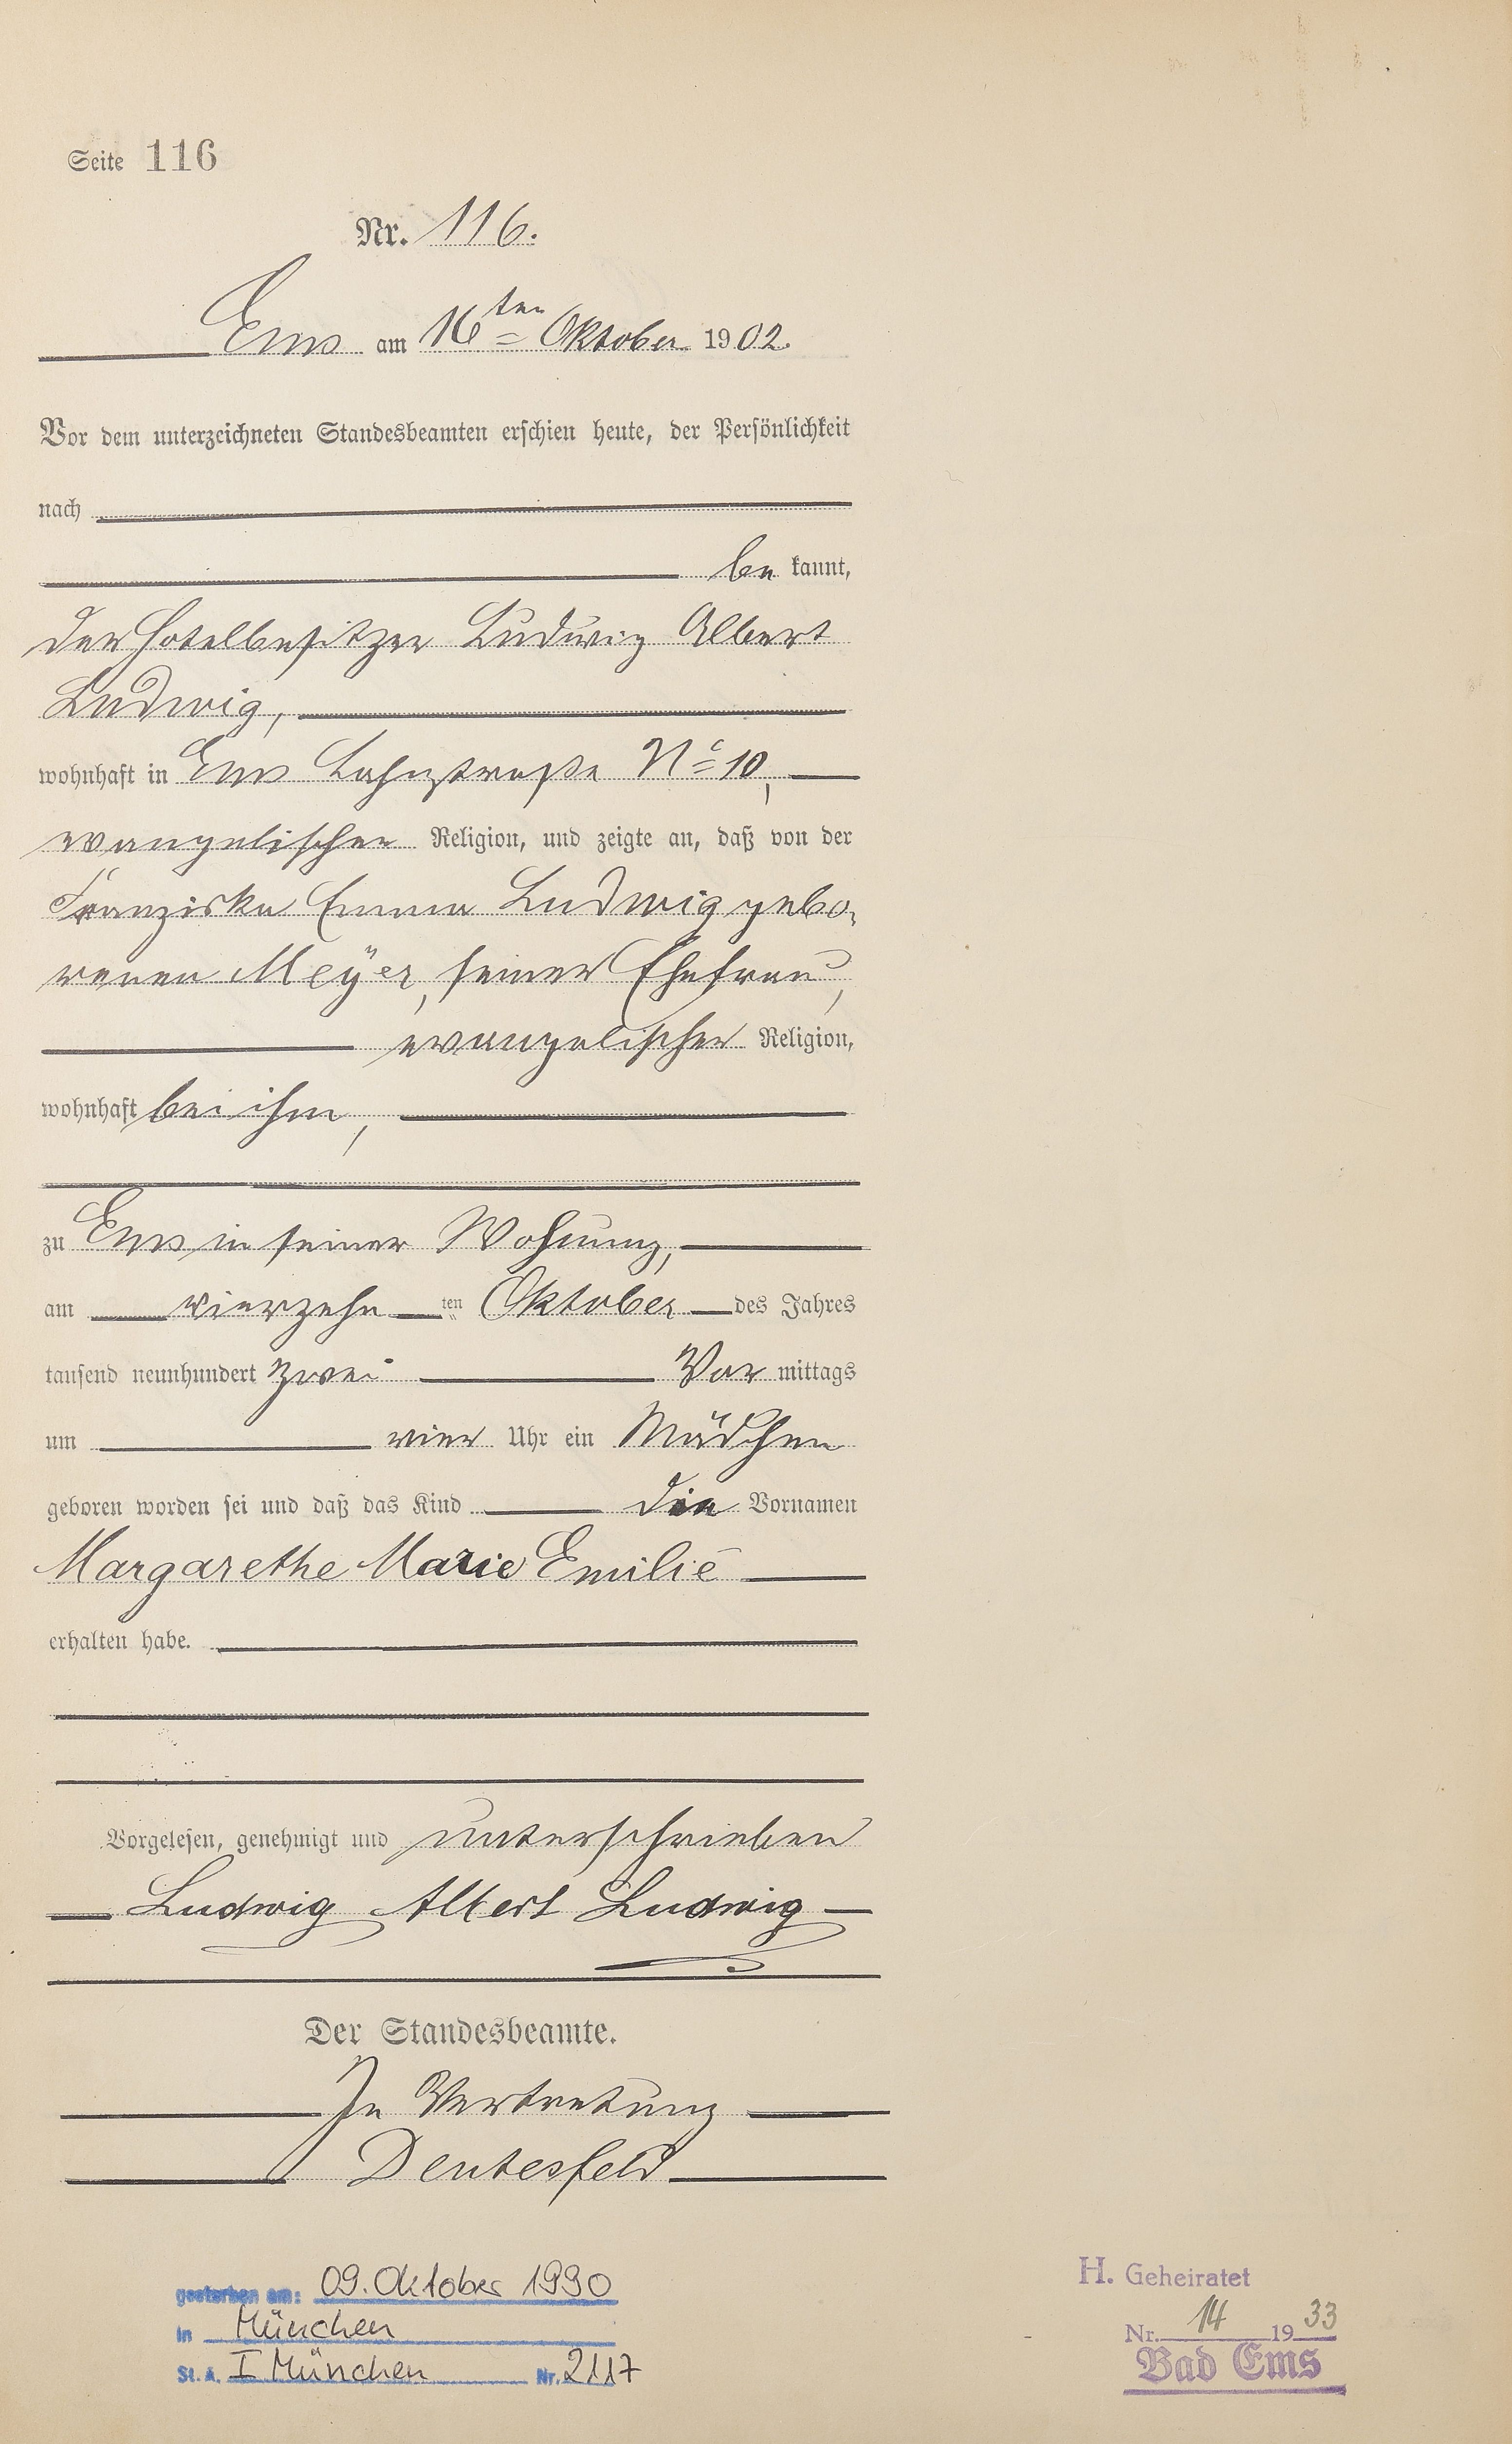 Seite 116
Nr. 116.
Ems am 16ten Oktober 1902.
Vor dem unterzeichneten Standesbeamten erschien heute, der Persönlichkeit
nach
be kannt,
der Hotelbesitzer Ludwig Albert
Ludwig,
wohnhaft in Ems Lahnstraße No 10,
evangelischer Religion, und zeigte an, daß von der
Franziska Emma Ludwig gebo-
renen Meÿer, seiner Ehefrau,
evangelischer Religion,
wohnhaft bei ihm,
zu Ems in seiner Wohnung,
am vierzehn ten Oktober des Jahres
tausend neunhundert zwei Vor mittags
um vier Uhr ein Mädchen
geboren worden sei und daß das Kind die Vornamen
Margarethe Marie Emilie
erhalten habe.
Vorgelesen, genehmigt und unterschrieben
Ludwig Albert Ludwig
Der Standesbeamte.
In Vertretung
Deutesfeld
gestorben am: 09. Oktober 1990
in München
St. A. I München Nr. 2117
H. Geheiratet
Nr. 14 1933
Bad Ems